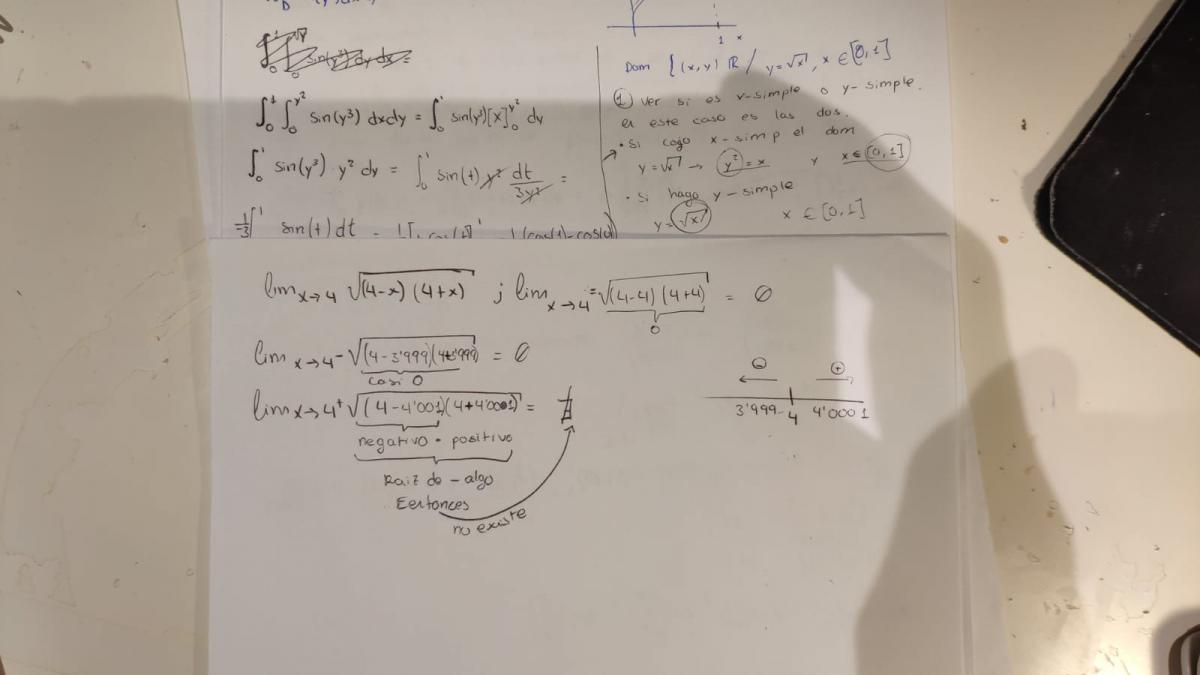 sin(y³) dy dx =
∫₀¹ ∫₀^{y²} sin(y³) dxdy = ∫₀¹ sin(y³) [x]₀^{y²} dy
∫₀¹ sin(y³) y² dy = ∫₀¹ sin(t) y² dt/3y² =
1/3 ∫¹ sin(t) dt
1 x
Dom {(x,y) ℝ / y=√x, x ∈ [0,1]
① Ver si es v-simple o y-simple.
en este caso es las dos.
• Si cojo x-simp el dom
y=√x → y²=x y x ∈ [0,1]
• Si hago y-simple
y=√x x ∈ [0,1]
lim x→4 √(4-x)(4+x) ; lim x→4 = √(4-4)(4+4) = 0
0
lim x→4⁻ √(4-3'999)(4+3'999) = 0
casi 0
lim x→4⁺ √(4-4'001)(4+4'0001) = ∄
negativo · positivo
Raiz de - algo
Eentonces
no existe
⊖ ⊕
3'999 4 4'0001